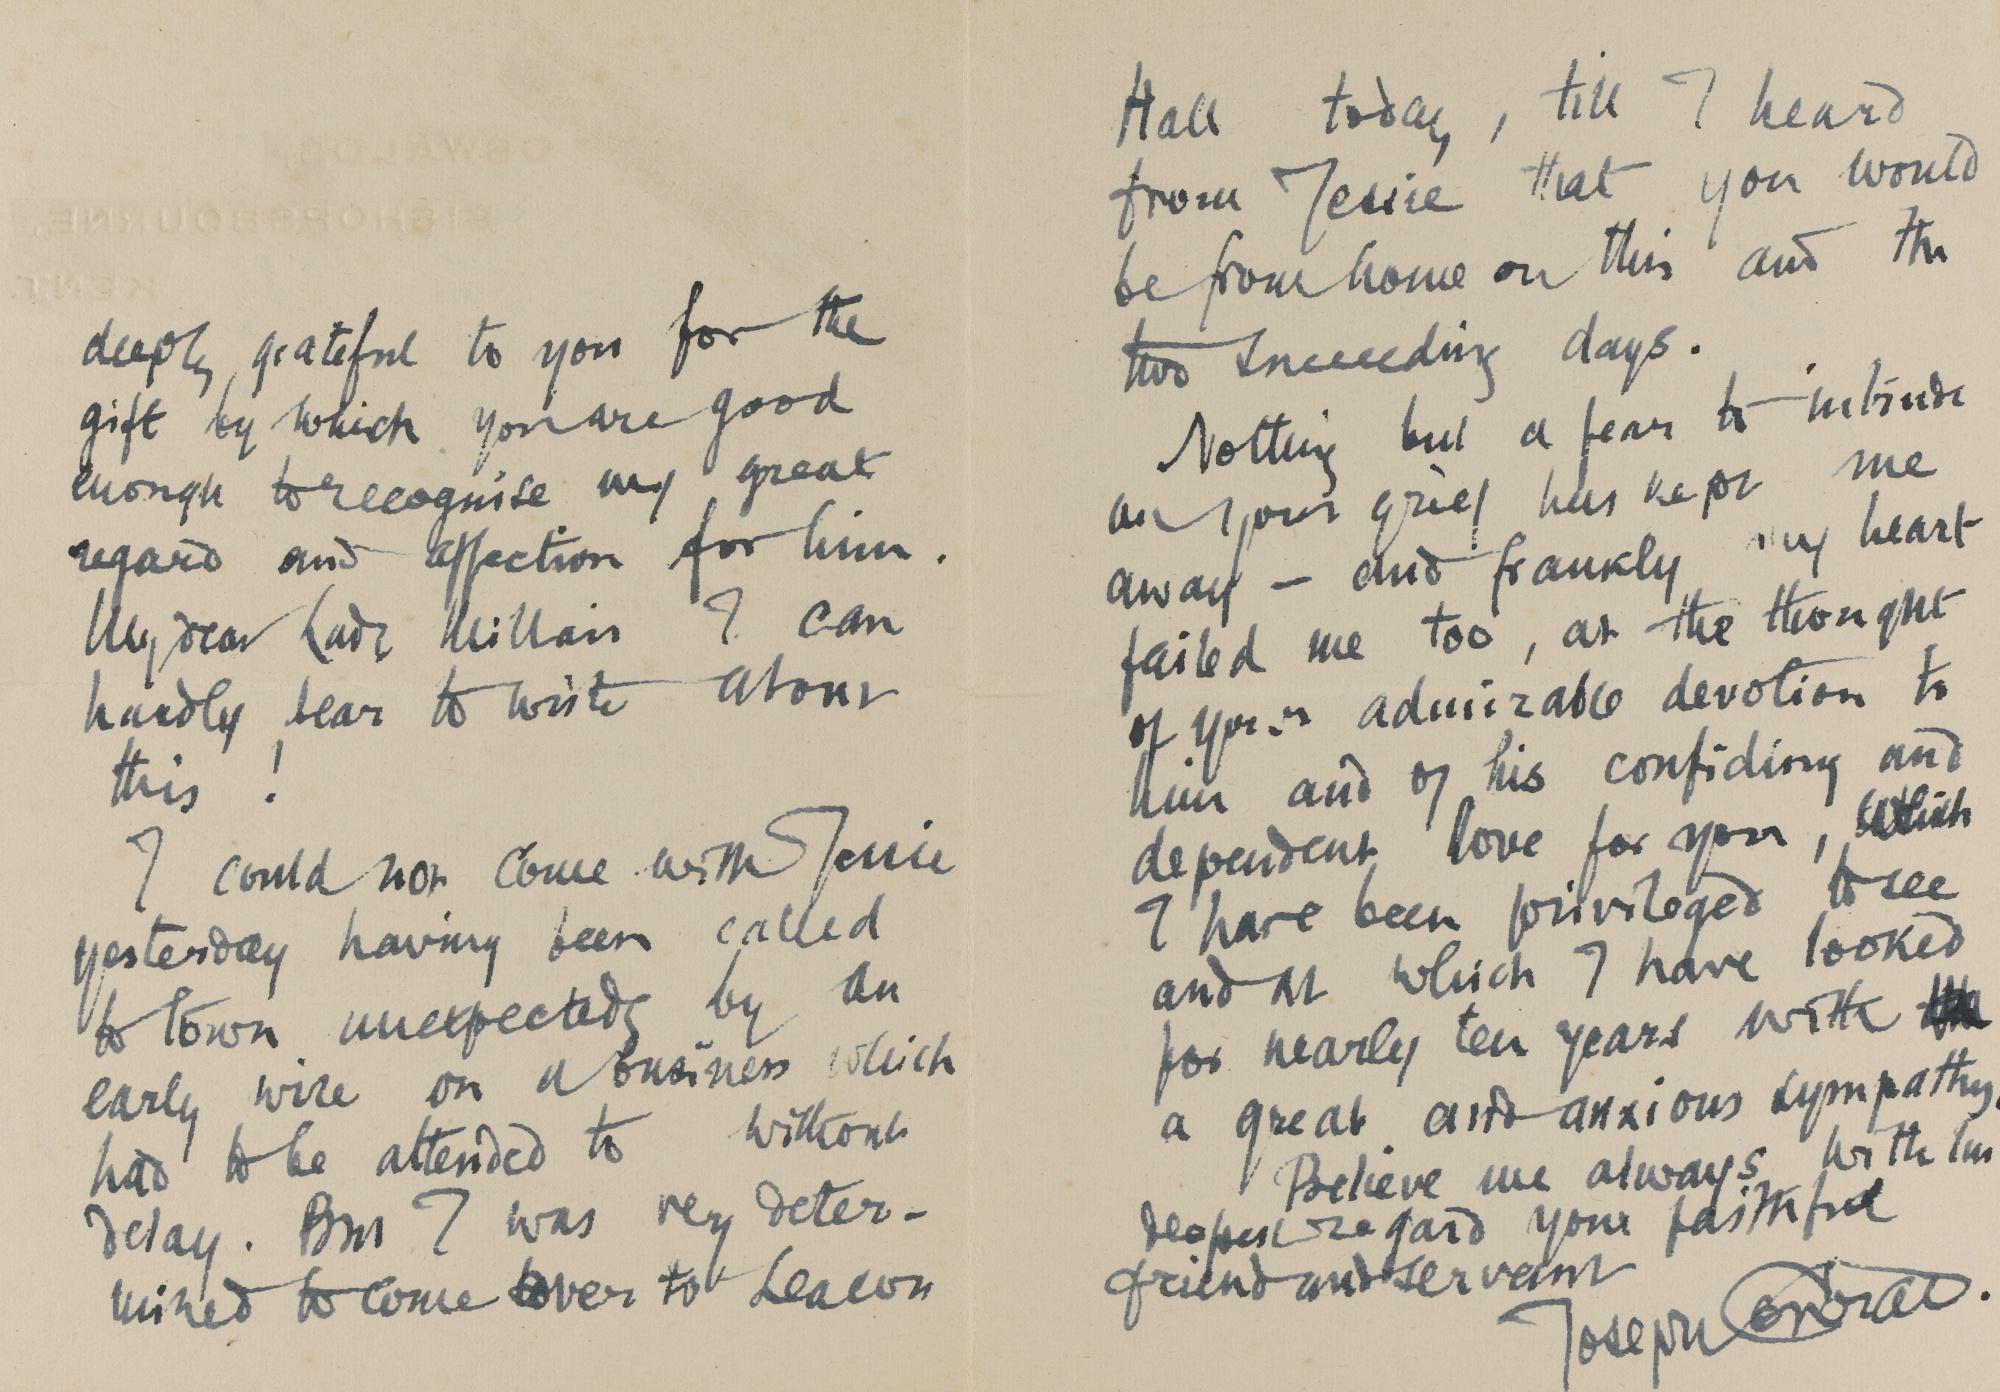 OSWALDS,
BISHOPSBOURNE,
KENT.
deeply grateful to you for the
gift by which you are good
enough to recognise my great
regard and affection for him.
My dear Lady Millais I can
hardly bear to write about
this!
I could not come with Jessie
yesterday having been called
to town unexpectedly by an
early wire on a business which
had to be attended to without
delay. But I was very deter-
mined to come over to Leacon
Hall today, till I heard
from Jessie that you would
be from home on this and the
two succeeding days.
Nothing but a fear to intrude
on your grief has kept me
away — and frankly my heart
failed me too, at the thought
of your admirable devotion to
him and of his confiding and
dependent love for you, which
I have been privileged to see
and at which I have looked
for nearly ten years with
a great and anxious sympathy.
Believe me always with the
deepest regard your faithful
friend and servant
Joseph Conrad.